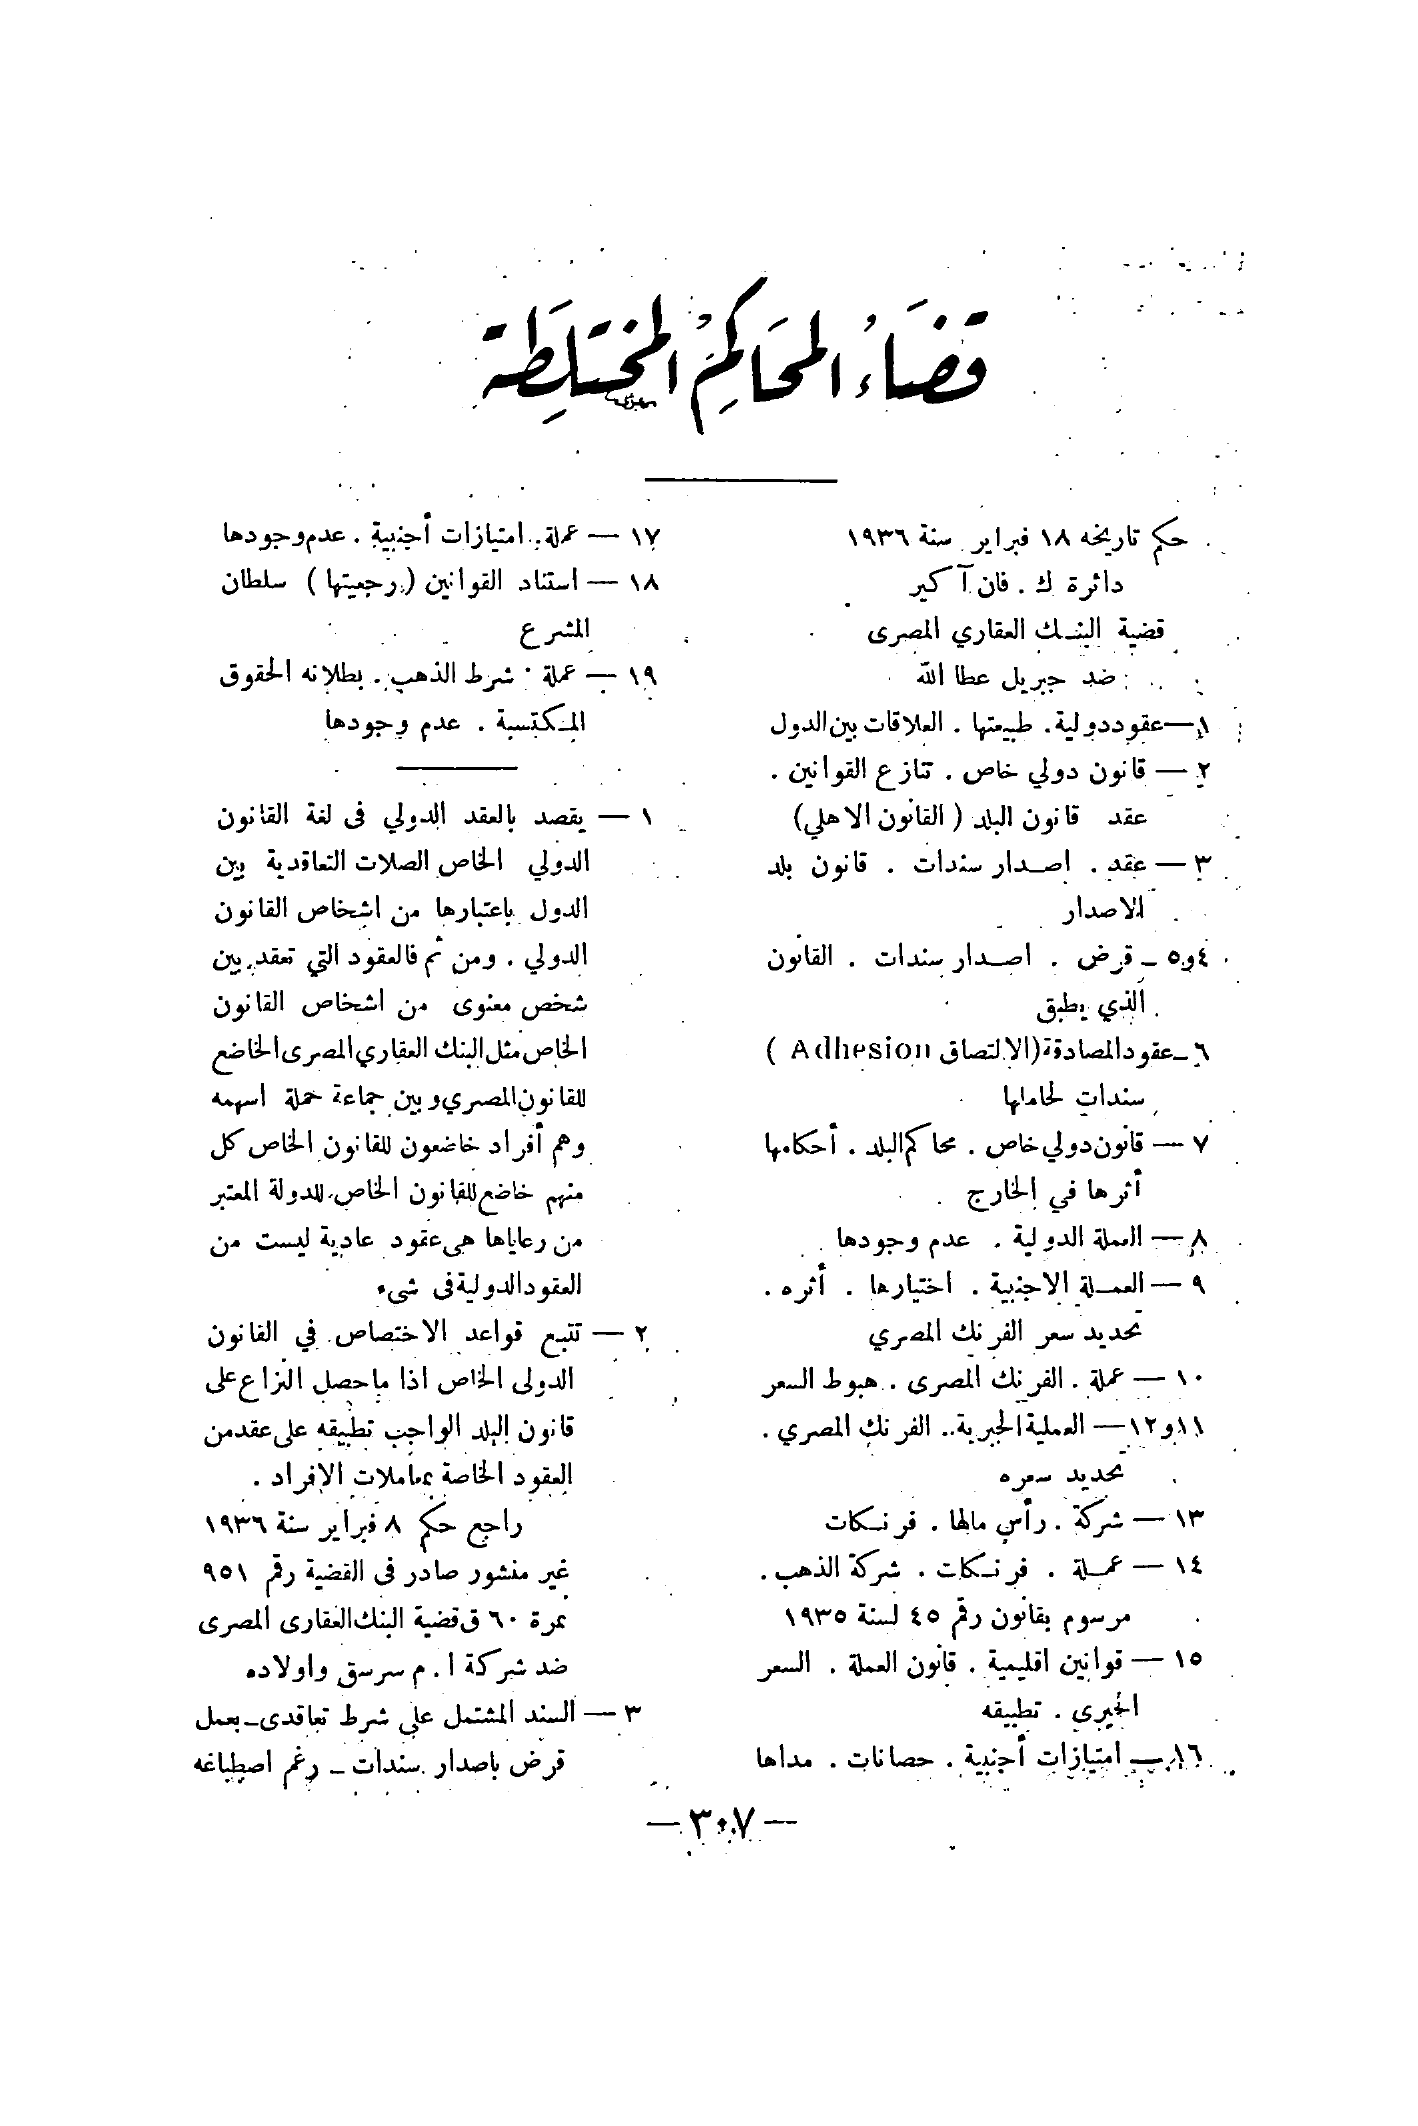 قضاء المحاكم المختلطة
حكم تاريخه ١٨ فبراير سنة ١٩٣٦
دائرة ك . فان آكير
قضية البنك العقاري المصرى
ضد جبريل عطا الله
١ — عقود دولية . طبيعتها . العلاقات بين الدول
٢ — قانون دولي خاص . تنازع القوانين .
عقد قانون البلد ( القانون الاهلي)
٣ — عقد . اصدار سندات . قانون بلد
الاصدار
٤و٥ — قرض . اصدار سندات . القانون
الذي يطبق
٦ — عقود المصادقة (الالتصاق Adhesion )
سندات لحاملها
٧ — قانون دولي خاص . محاكم البلد . أحكامها
أثرها في الخارج
٨ — العملة الدولية . عدم وجودها
٩ — العملة الاجنبية . اختيارها . أثره .
تحديد سعر الفرنك المصري
١٠ — عملة . الفرنك المصرى . هبوط السعر
١١و١٢ — العملية الجبرية .. الفرنك المصري .
تحديد سعره
١٣ — شركة . رأس مالها . فرنكات
١٤ — عملة . فرنكات . شركة الذهب .
مرسوم بقانون رقم ٤٥ لسنة ١٩٣٥
١٥ — قوانين اقليمية . قانون العملة . السعر
الجبري . تطبيقه
١٦ — امتيازات أجنبية . حصانات . مداها
١٧ — عملة . امتيازات أجنبية . عدم وجودها
١٨ — استناد القوانين ( رجعيتها ) سلطان
المشرع
١٩ — عملة . شرط الذهب . بطلانه الحقوق
المكتسبة . عدم وجودها
١ — يقصد بالعقد الدولي فى لغة القانون
الدولي الخاص الصلات التعاقدية بين
الدول باعتبارها من اشخاص القانون
الدولي . ومن ثم فالعقود التي تعقد بين
شخص معنوى من اشخاص القانون
الخاص مثل البنك العقاري المصرى الخاضع
للقانون المصري وبين جماعة حملة اسهمه
وهم أفراد خاضعون للقانون الخاص كل
منهم خاضع للقانون الخاص للدولة المعتبر
من رعاياها هى عقود عادية ليست من
العقود الدولية فى شىء
٢ — تتبع قواعد الاختصاص في القانون
الدولى الخاص اذا ما حصل النزاع على
قانون البلد الواجب تطبيقه على عقد من
العقود الخاصة بمعاملات الافراد .
راجع حكم ٨ فبراير سنة ١٩٣٦
غير منشور صادر فى القضية رقم ٩٥١
نمرة ٦٠ ق قضية البنك العقارى المصرى
ضد شركة ا . م سرسق واولاده
٣ — السند المشتمل على شرط تعاقدى ـ بعمل
قرض باصدار سندات ـ رغم اصطباغه
— ٣٠٧ —